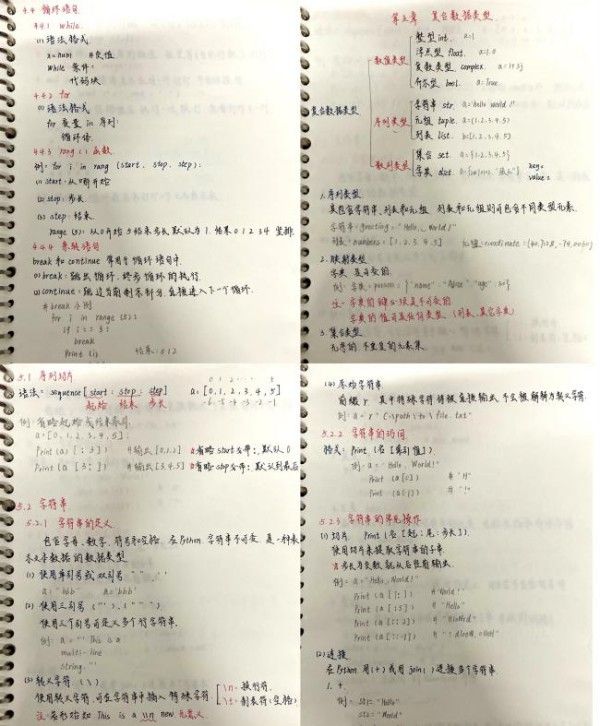 4.4 循环语句
4.4.1 while.
(1) 语法格式
a=num #定值
While 条件:
代码块
4.4.2 for
(1) 语法格式
for 变量 in 序列:
循环体
4.4.3 rang() 函数
例: for i in rang (start, stop, step):
(1) start: 从0开始
(2) stop: 步长
(3) step: 结束.
range (5): 从0开始 5结束 步长默认为 1. 结果 0 1 2 3 4 竖排
4.4.4 跳转语句
break 和 continue 常用于循环语句中.
(1) break: 跳出循环, 终步循环的执行.
(2) continue: 跳过当前剩余部分, 直接进入下一个循环.
#break 示例
for i in range (5):
if i == 3:
break
Print (i) 结果: 0 1 2
第五章 复合数据类型
复合数据类型
数值类型
整型 int. a=1
浮点型 float. a=1.0
复数类型 complex. a=1+3j
布尔型 bool. a=True
序列类型
字符串 str a="hello world!"
元组 tuple. a=(1,2,3,4,5)
列表 list. a=[1,2,3,4,5]
散列类型
集合 set. a={1,2,3,4,5}
字典 dict.
key:
value:
1. 序列类型.
其包含字符串, 列表和元组 列表和元组则可包含不同类型元素.
字符串: greeting = "Hello, World!"
列表: numbers = [1, 2, 3, 4, 5]
2. 映射类型
字典 是可变的.
例: 字典: person = { "name": "Alice", "age": 30}
注: 字典的键必须是不可变的
字典的值可是任何类型. (列表, 其它字典)
3. 集合类型
无序的, 不重复的元素集.
5.1 序列切片
语法: sequense [start : stop : step] a: [0, 1, 2, 3, 4, 5]
起始 结束 步长
例: 省略起始或结束索引.
a = [0, 1, 2, 3, 4, 5]
Print (a) [:3]) #输出 [0,1,2] #省略 start 参: 默认从0
Print (a [3:]) #输出 [3,4,5] #省略 stop 参: 默认到最后
5.2 字符串
5.2.1 字符串的定义
包含字母、数字、符号和空格. 在Python 字符串不可变. 是一种表
示文本数据的数据类型
(1) 使用单引号或双引号
a='bbb' a="bbb"
(2) 使用三引号 (''') , (""").
使用三个引号可定义多个行字符串.
例: a=''' This is a
multi-line
string. '''
(3) 转义字符. (\)
使用转义字符, 可在字符串中插入特殊字符
\n- 换行符.
\t- 制表符(空格)
注: 若形如 This is a \\n new 无意义
(4) 原始字符串
前缀 r 其中特殊字符将被直接输出, 不会被解释为转义字符.
例: a=r"C:\path\to\file.txt"
5.2.2 字符串的访问
格式: Print (名 [索引值]).
例: a = "Hello, World!"
Print (a[0]) # "H"
Print (a[-1]) # "!"
5.2.3 字符串的常见操作
(1) 切片 Print (名 [起: 尾: 步长])
使用切片来提取字符串的子串.
#步长为负数, 就从后往前输出.
例: a = "Hello, World!"
Print (a [:]) # "World!"
Print (a [:5]) # "Hello"
Print (a [::-1]) # "!dlroW, olleH"
(2) 连接
在Python 用 (+) 或用 join() 连接多个字符串.
1. +.
例: str1 = "Hello"
str2 = "World"